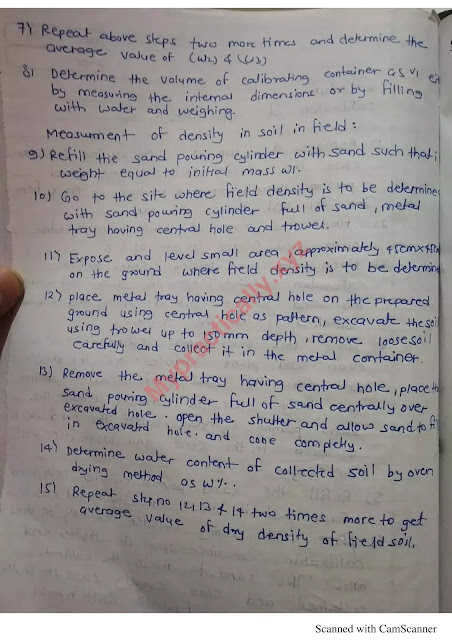 7) Repeat above steps two more times and determine the
average value of (W2) & (W3)
8) Determine the volume of calibrating container as V1 e
by measuring the internal dimensions or by filling
with water and weighing.
Measurment of density in soil in field :
9) Refill the sand pouring cylinder with sand such that i
weight equal to initial mass W1.
10) Go to the site where field density is to be determine
with sand pouring cylinder full of sand, metal
tray having central hole and trowel.
11) Expose and level small area, approximately 45cmx45cm
on the ground where field density is to be determine
12) place metal tray having central hole on the prepared
ground using central hole as pattern, excavate the soil
using trowel up to 150mm depth, remove loose soil
carefully and collect it in the metal container.
13) Remove the metal tray having central hole, place th
sand pouring cylinder full of sand centrally over
excavated hole. open the shutter and allow sand to fi
in excavatd hole. and cone completly.
14) Determine water content of collected soil by oven
drying method as w%.
15) Repeat step no 12, 13 & 14 two times more to get
average value of dry density of field soil.
Mypractically.xyz
Scanned with CamScanner